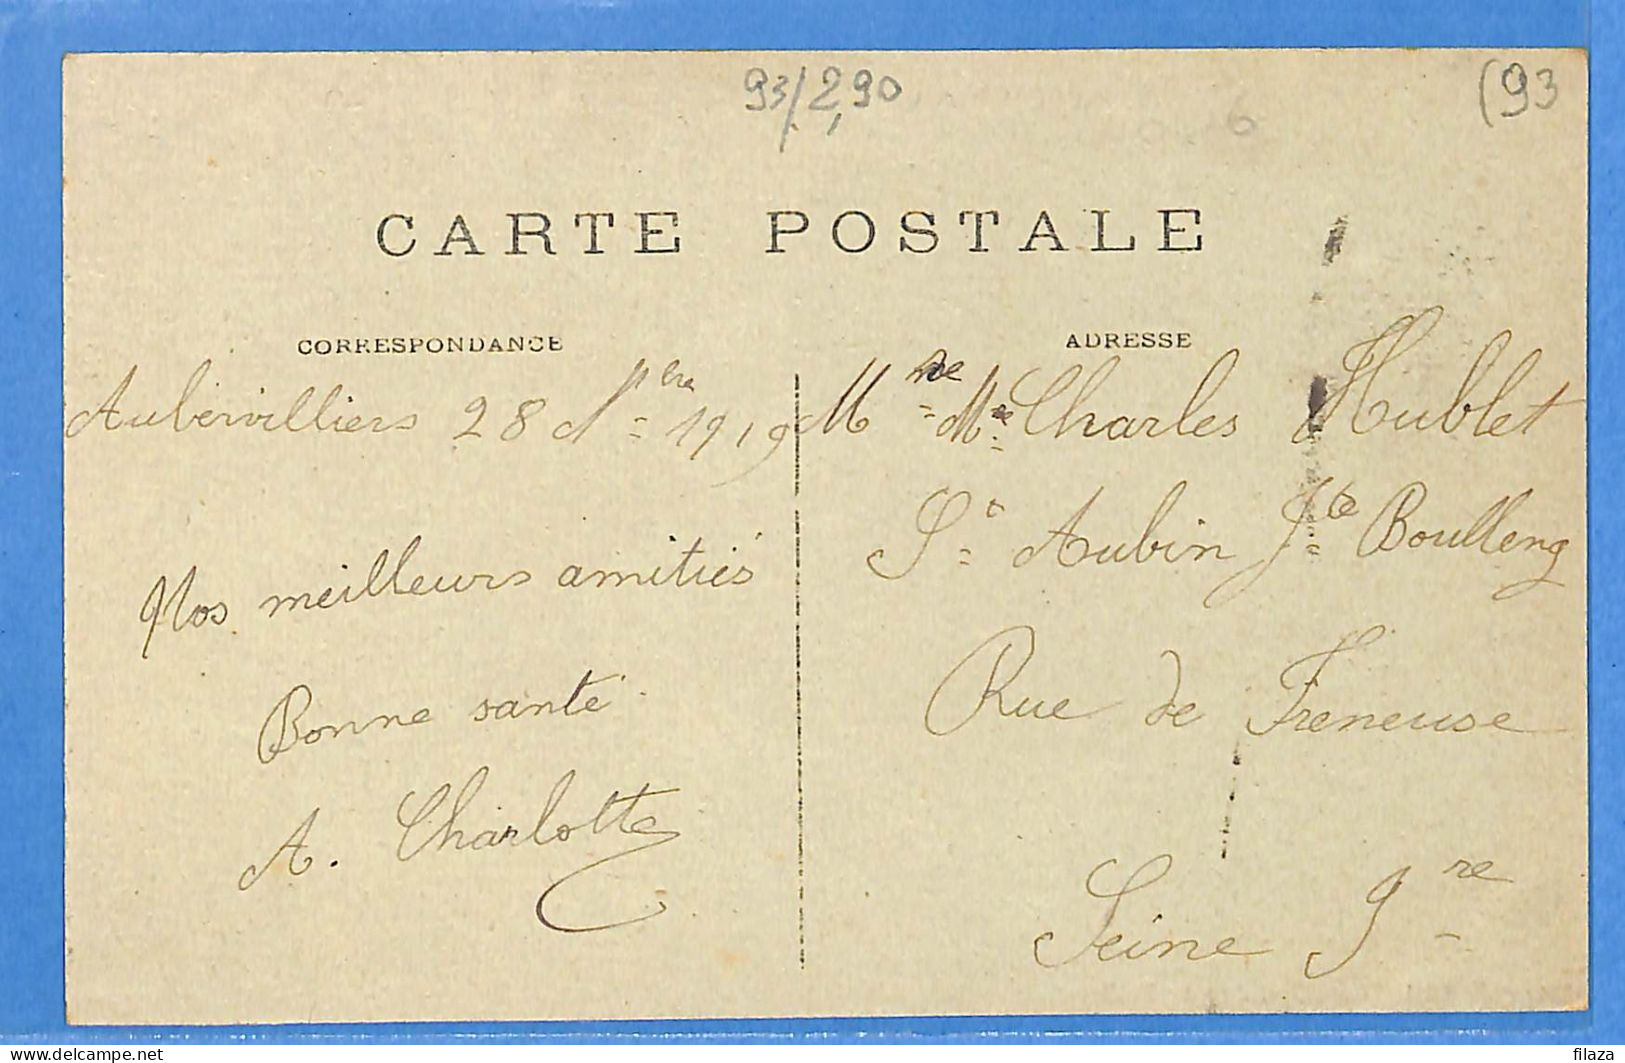 93/2,90
(93
CARTE POSTALE
CORRESPONDANCE
Aubervilliers 28 Nbre 1919
Nos meilleurs amitiés
Bonne santé
A. Charlotte
ADRESSE
Mme Charles Hublet
St Aubin Jte Boulleng
Rue de Freneuse
Seine Jre
filaza
delcampe.net